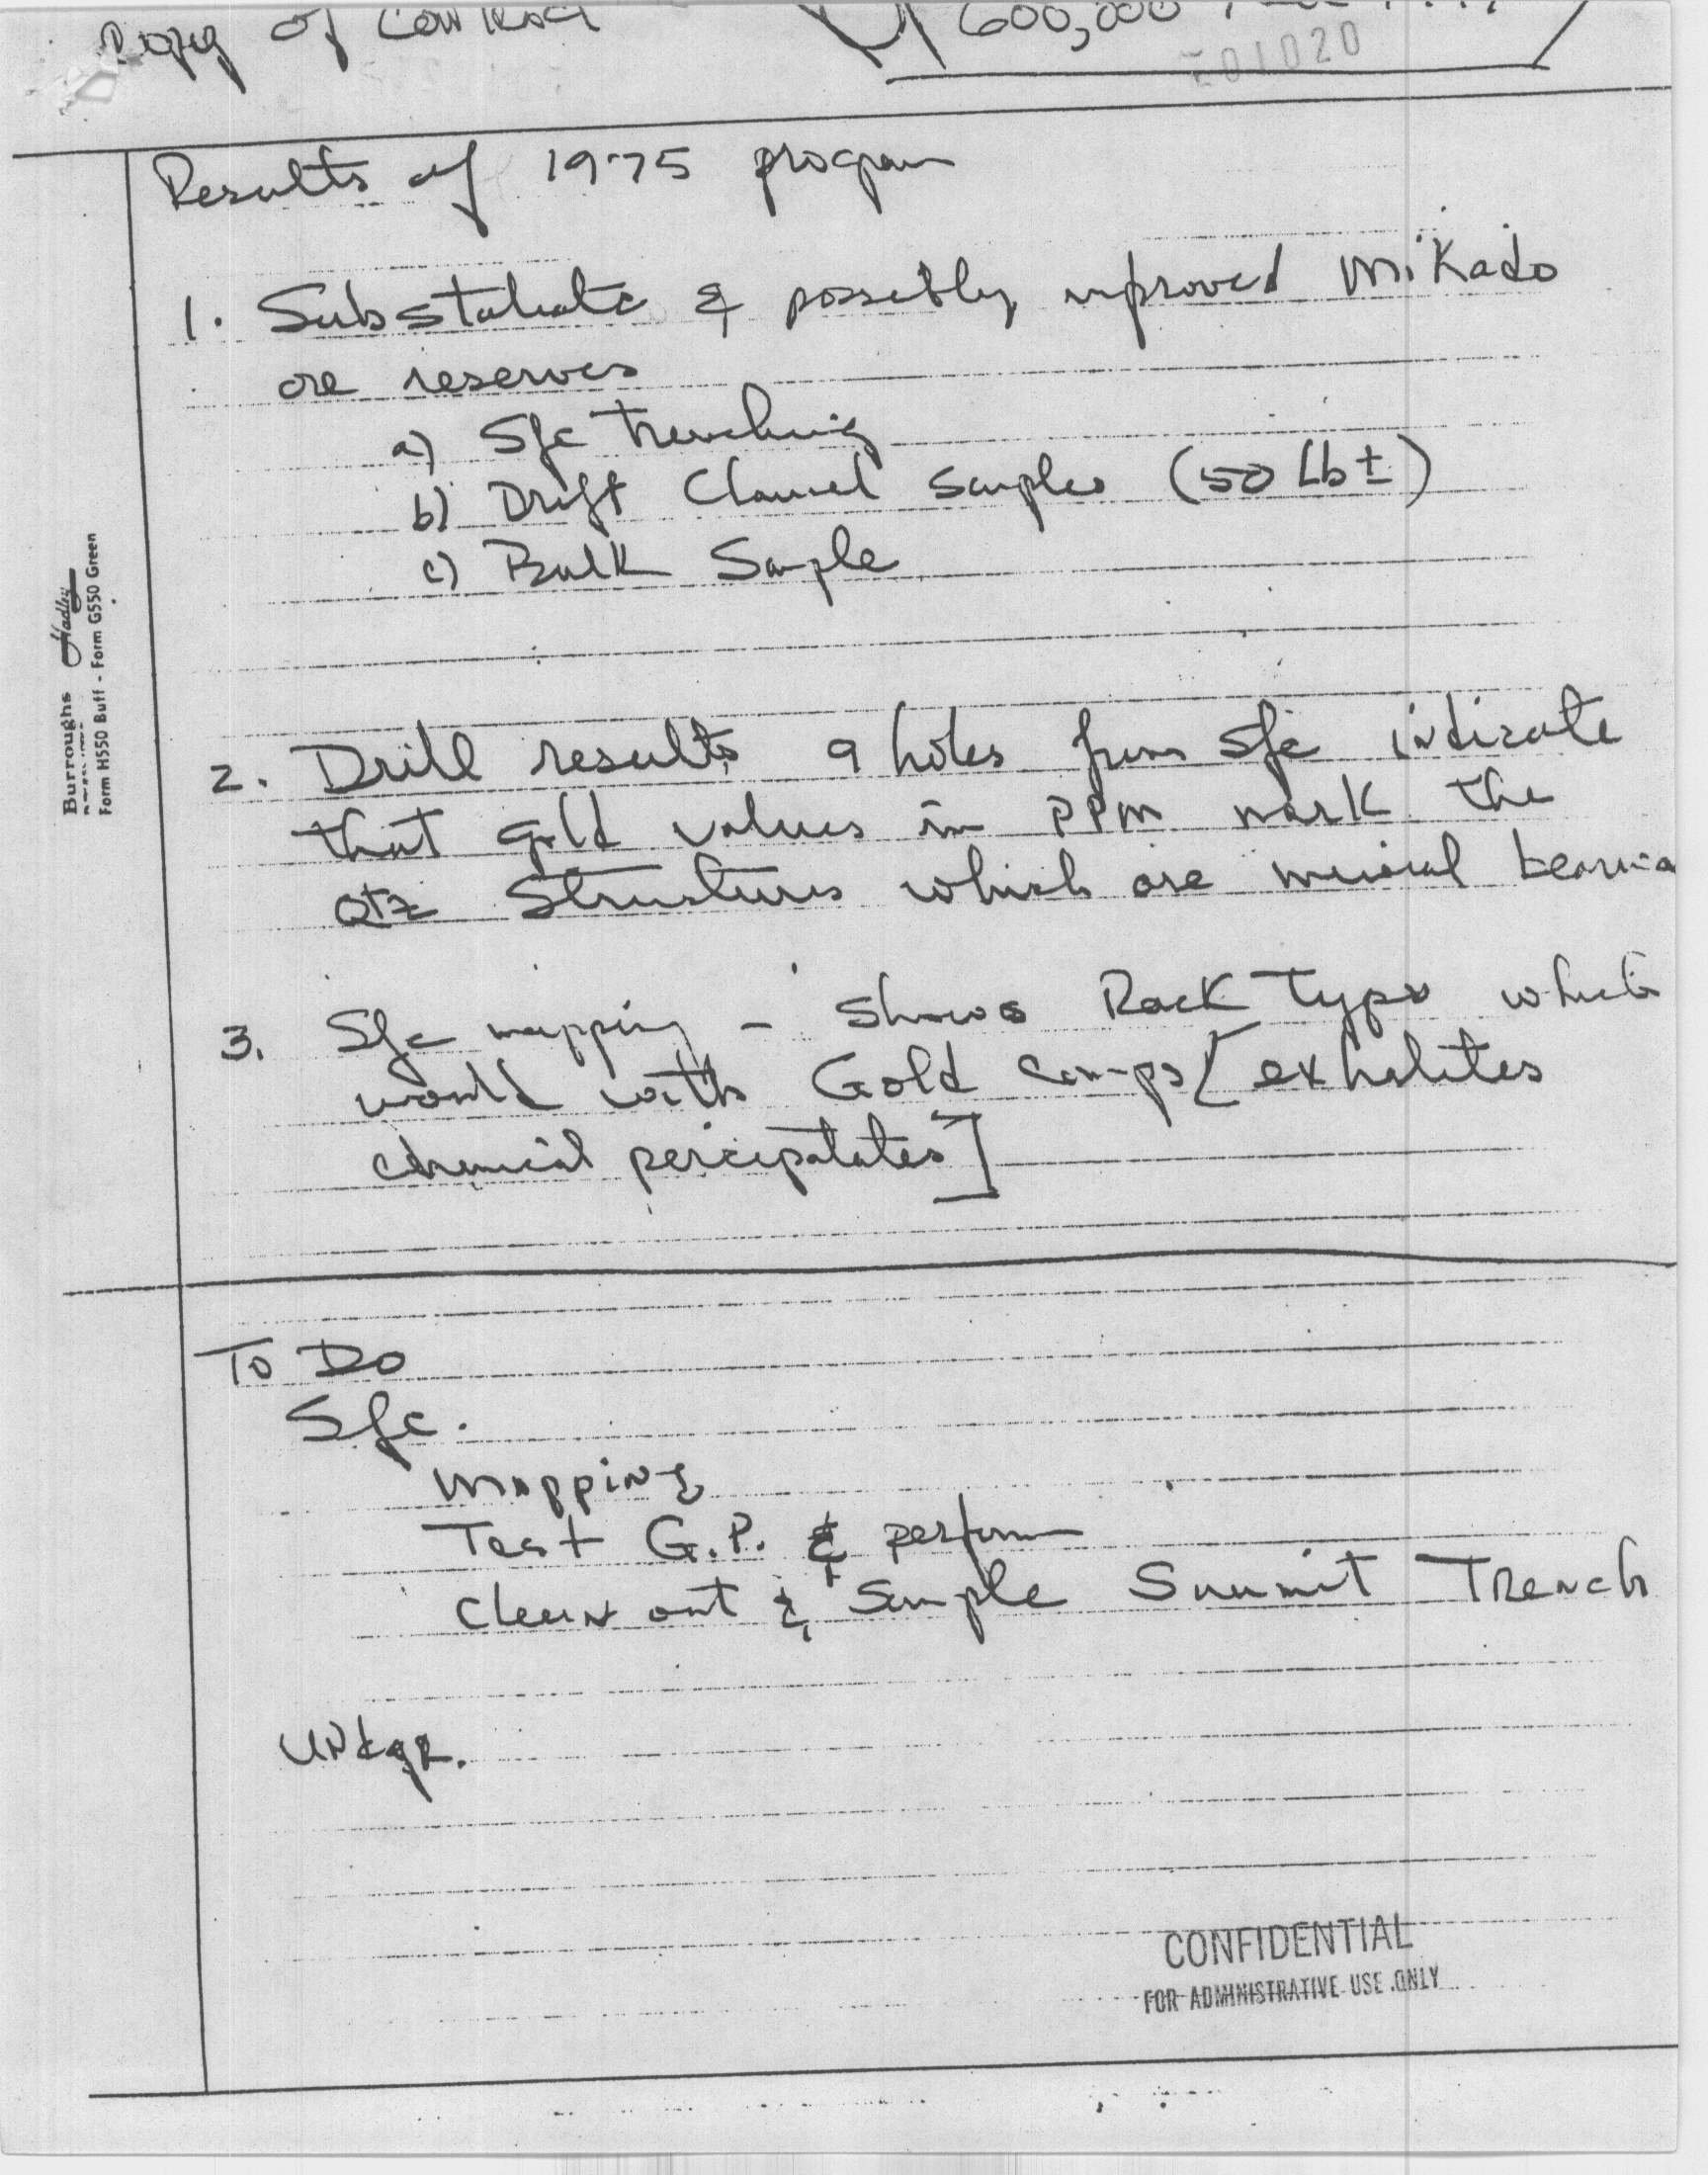 Copy of Contract 600,000
201020
Results of 1975 program
1. Substatiate & possibly improved Mikado
ore reserves
a) Sfc trenching
b) Drift Channel Samples (50 Lb ±)
c) Bulk Sample
2. Drill results 9 holes from Sfc indicate
that gold values in PPM mark the
Qtz Structures which are mineral bearing
3. Sfc mapping - Shows Rock Types which
would with Gold camps [exhalites
chemical percipatates]
To Do
Sfc.
Mapping
Test G.P. & perform
Clean out & Sample Summit Trench
UNdgR.
Burroughs Hadley
Form H550 Buff - Form G550 Green
CONFIDENTIAL
FOR ADMINISTRATIVE USE ONLY